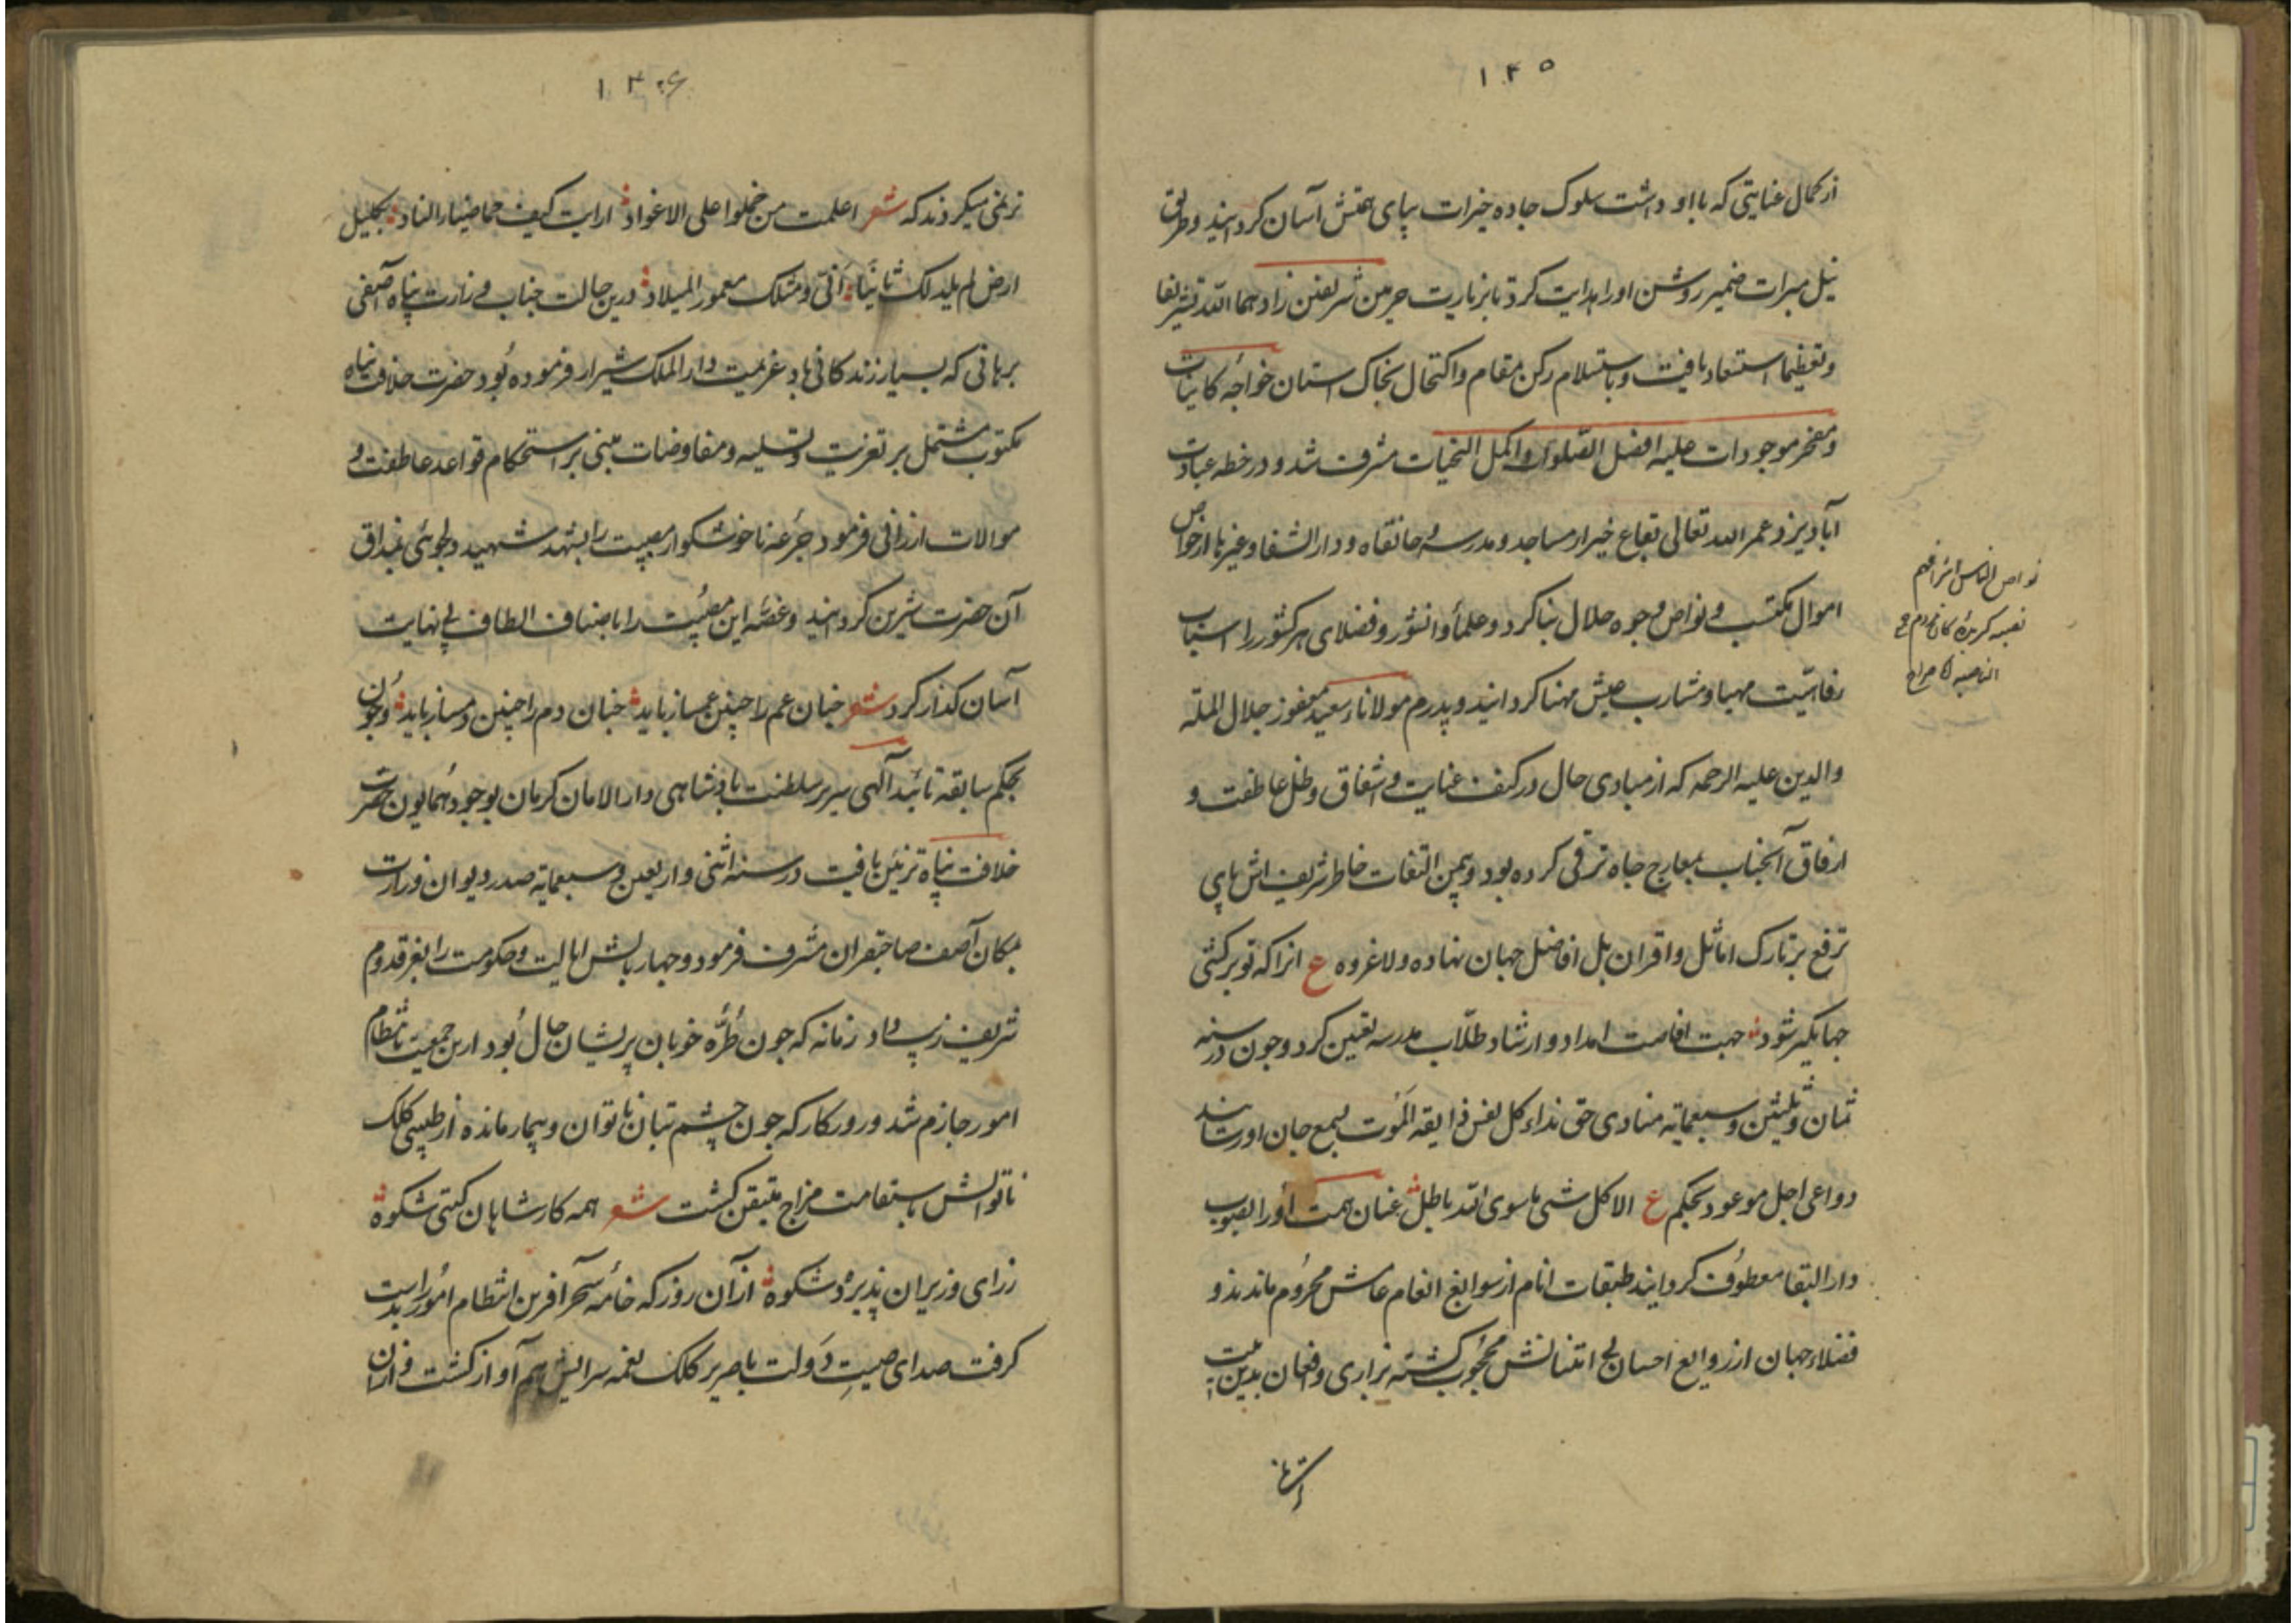 ۱۴۵
از کمال عنایتی که با او داشت سلوک جاده خیرات بپای همتش آسان کردانید و طریق
نیل مبرات ضمیر روشن او را هدایت کرد تا بزیارت حرمین شریفین زادهما الله تشریفا
و تعظیما استسعاد یافت و باستلام رکن مقام و اکتحال بخاک استان خواجهٔ کاینات
و مفخر موجودات علیه افضل الصّلوات و اکمل التحیات مشرف شد و در خطه عبادت
آباد یزد عمر الله تعالی بقاع خیر از مساجد و مدرسه و خانقاه و دار الشفا و غیرها از خواص
اموال مکتسب و نواص وجوه حلال بنا کرد و علمأ دانشور و فضلای هر کشور را اسباب
رفاهیّت مهیا و مشارب عیش مهنا کردانید و پدرم مولاناء سعید مغفور جلال الملة
والدین علیه الرحمه که از مبادی حال در کنف عنایت و اشفاق و ظل عاطفت و
ارفاق آنجناب بمعارج جاه ترقی کرده بود و بیمن التفات خاطر شریف اش پای
ترفع بر تارک اماثل و اقران بل افاضل جهان نهاده ولاغروه ع انرا که تو برکشی
جهانکیر شود جهت افاضت امداد و ارشاد طلّاب مدرسه تعیین کرد و جون در سنه
ثمان و ثلثین و سبعمایه منادی حق نداء کل نفس ذایقة المَوت بسمع جان او رسانید
دواعی اجل موعود بحکم ع الا کل شیٔ ما سوی الله باطل عنان همت او را بصوب
دار البقا معطوف کردانید طبقات انام از سوابغ انعام عامش محرُوم ماندند و
فضلاء جهان از روایع احسان بی امتنانش محجُوب کشته بزاری و فغان بدین بیت
نواص الناس اشرافهم
۱۴۶
ترنمی میکردند که شعر اعلمت من حملوا علی الاعواد ارایت کیف خبا ضیاء الناد بجلیل
ارض لم یلد لک ثانیًا انّی و مثلک معمور المیلاد درین حالت جناب وزارت پناه آصفی
برهانی که بسیار زندکانی باد عزیمت دار الملک شیراز فرموده بُود حضرت خلافت پناه
مکتوب مشتمل بر تعزیت و تسلیه و مفاوضات مبنی بر استحکام قواعد عاطفت و
موالات ارزانی فرمود جرُعه ناخوشکوار مصیبت را بشهد شهید دلجوئی بمذاق
آن حضرت شیرین کردانید و غصّه این مصیُبت را باصناف الطاف بی نهایت
آسان کذار کرد شعر جنان عم را چنین عمساز باید جنان دم را چنین دمساز باید و جُون
بحکم سابقه تائید آلهی سریر سلطنت بادشاهی دار الامان کرمان بوجود همایون حضرت
خلافت پناه تزئین یافت در سنه اثنی و اربعین و سبعمایه صدر دیوان وزارت
بمکان آصف صاحبقران مشرف فرمود و جهار بالش ایالت و حکومت را بفرّ قدوم
شریف زیب داد زمانه که جون طُرُّه خوبان پریشان حال بُود ازین جمعیت بانتظام
امور جازم شد و روزکار که جون چشم بتان ناتوان و بیمار مانده از طبیبی کلک
ناتوانش باستقامت مزاج متیقن کشت شعر همه کار شاهان کیتی شکوه
ز رای وزیران پذیرد شکوه از آن روز که خامه سحر آفرین انتظام امُور را بدست
کرفت صدای صیتِ دَولت با صریر کلک نغمه سرایش هم آواز کشت و از آن